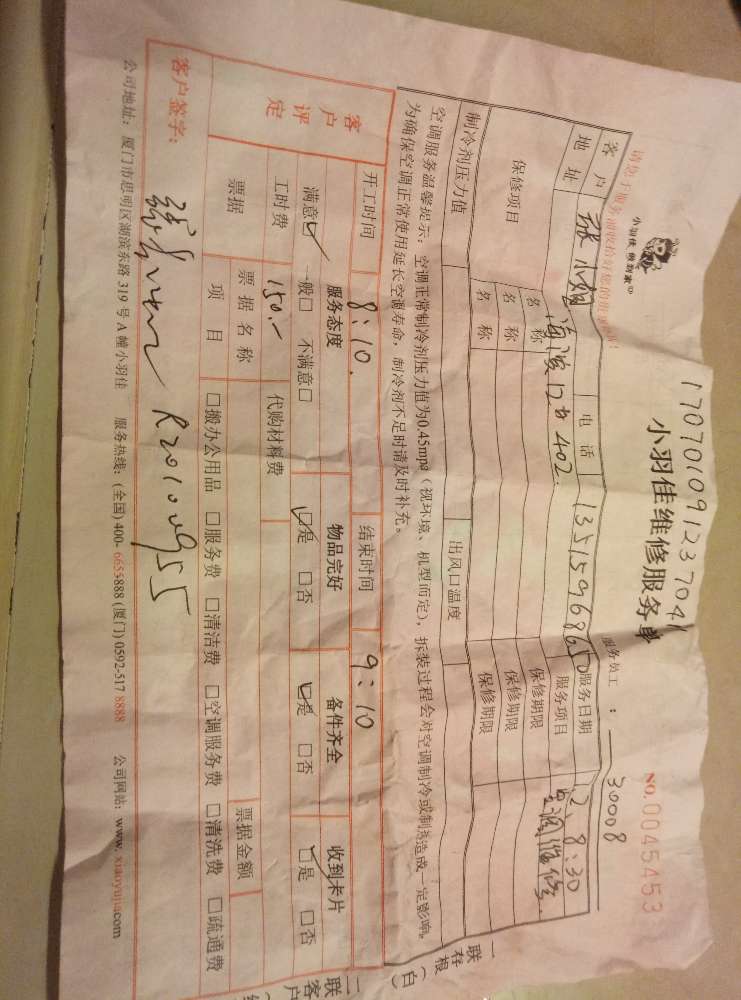 17070109123704
小羽佳维修服务单
NO.0045453
小羽佳 傲到家
服务员工：30008
客户 张小姐 电话 13515968650 服务日期 12、8:30
地址 海滨12 402. 服务项目 空调维修
保修项目 名称 保修期限
名称 保修期限
名称 保修期限
制冷剂压力值 出风口温度
空调服务温馨提示：空调正常制冷剂压力值为0.45mpa（视环境、机型而定），拆装过程会对空调制冷或制热造成一定影响。
为确保空调正常使用延长空调寿命，制冷剂不足时请及时补充。
客户评定 开工时间 8:10. 结束时间 9:10
服务态度 物品完好 备件齐全 收到卡片
满意☑ 一般□ 不满意□ ☑是 □否 ☑是 □否 ☑是 □否
工时费 150.- 代购材料费
票据 票据名称 票据金额
项目 □搬办公用品 □服务费 □清洁费 □空调服务费 □清洗费 □疏通费
客户签字：
公司地址：厦门市思明区湖滨东路 319 号 A 幢小羽佳 服务热线：(全国) 400- 6655888 (厦门) 0592-517 8888 公司网站：www. xiaoyujia.com
一联存根（白）
二联客户